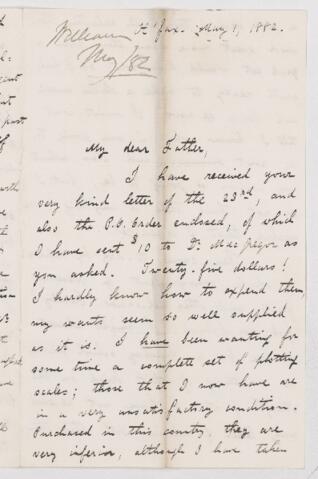 William
May/82
H'fax. May 1, 1882.
My dear Father,
I have received your
very kind letter of the 23rd, and
also the P.O. Order enclosed, of which
I have sent $10 to Dr. MacGregor as
you asked. Twenty-five dollars!
I hardly know how to expend them,
my wants seem so well supplied
as it is. I have been wanting for
some time a complete set of plotting
scales; those that I now have are
in a very unsatisfactory condition.
Purchased in this country, they are
very inferior, although I have taken